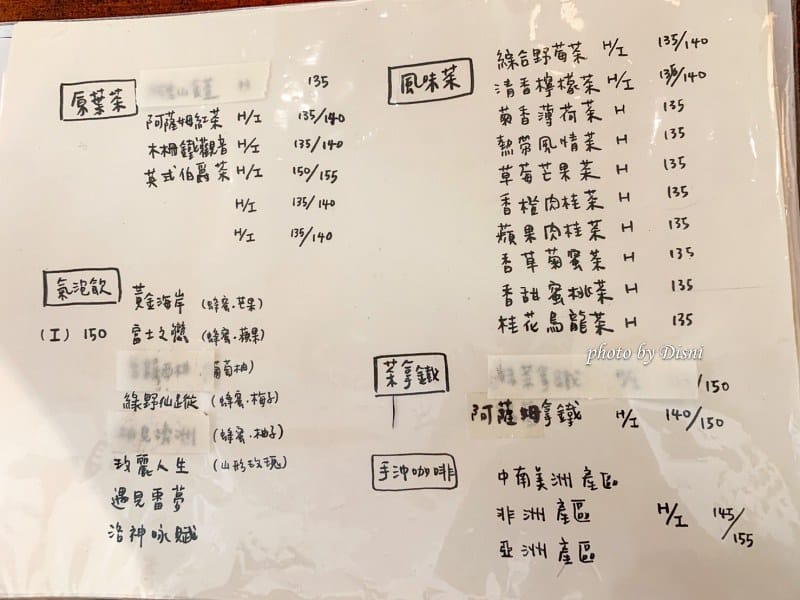 原葉茶
H 135
阿薩姆紅茶 H/I 135/140
木柵鐵觀音 H/I 135/140
英式伯爵茶 H/I 150/155
H/I 135/140
H/I 135/140
氣泡飲
(I) 150
黃金海岸 (蜂蜜.芒果)
富士之戀 (蜂蜜.蘋果)
葡萄柚)
綠野仙蹤 (蜂蜜.梅子)
(蜂蜜.柚子)
玫麗人生 (山形玫瑰)
遇見雷夢
洛神咏賦
風味茶
綜合野莓茶 H/I 135/140
清香檸檬茶 H/I 135/140
菊香薄荷茶 H 135
熱帶風情茶 H 135
草莓芒果茶 H 135
香橙肉桂茶 H 135
蘋果肉桂茶 H 135
香草菊蜜茶 H 135
香甜蜜桃茶 H 135
桂花烏龍茶 H 135
photo by Disni
茶拿鐵
/150
阿薩姆拿鐵 H/I 140/150
手沖咖啡
中南美洲產區
非洲產區 H/I 145/155
亞洲產區